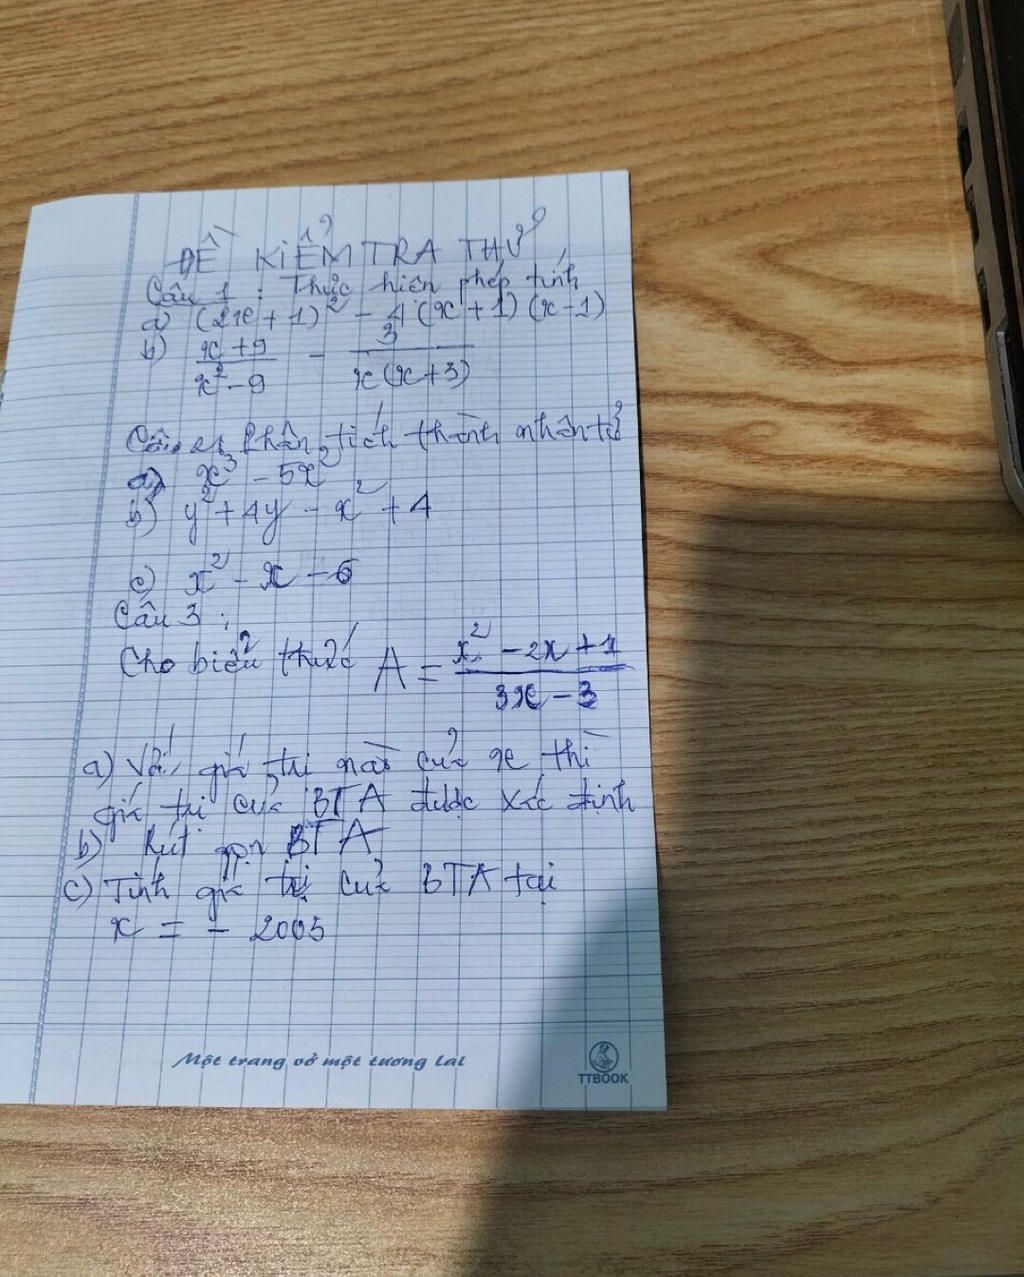 ĐỀ KIỂM TRA THỬ
Câu 1 : Thực hiện phép tính
a) (2x + 1)² - 4 (x + 1) (x - 1)
b) x + 9 / x² - 9 - 3 / x(x + 3)
Câu 2, Phân tích thành nhân tử
a) x³ - 5x²
b) y² + 4y - x² + 4
c) x² - x - 6
Câu 3 :
Cho biểu thức A = x² - 2x + 1 / 3x - 3
a) Với giá trị nào của x thì
giá trị của BTA được xác định
b) Rút gọn BTA
c) Tính giá trị của BTA tại
x = - 2005
Một trang vở một tương lai
TTBOOK